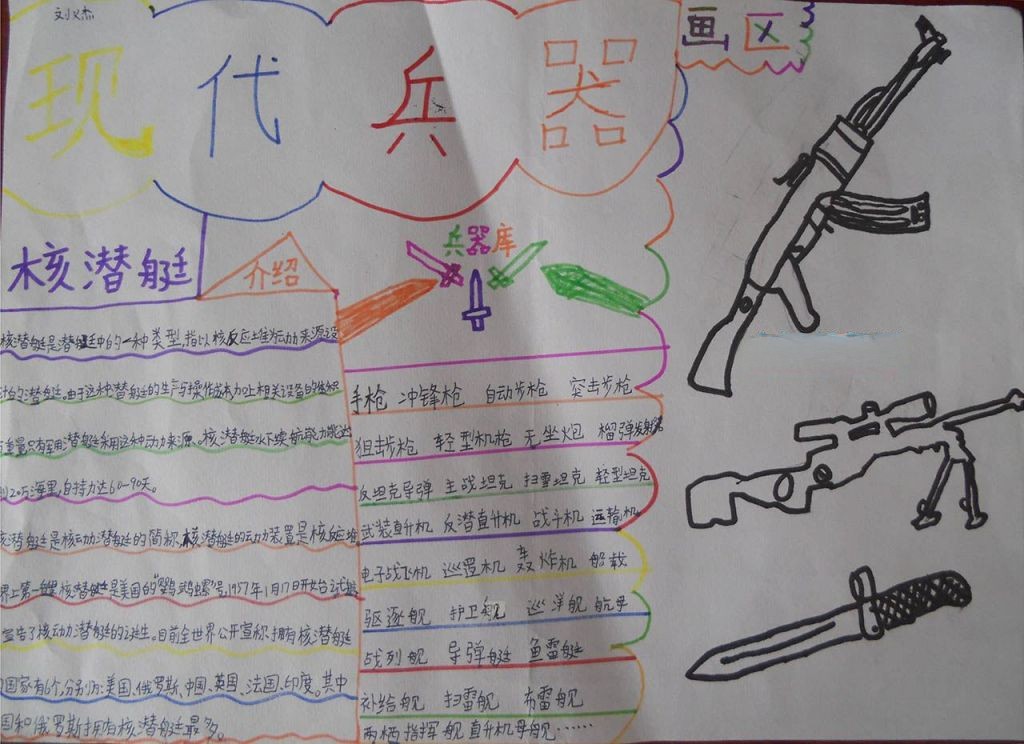 刘义杰
现代兵器
画区
核潜艇
介绍
核潜艇是潜艇中的一种类型,指以核反应堆为动力来源设
计的潜艇。由于这种潜艇的生产与操作成本加上相关设备的体积
与重量只有军用潜艇采用这种动力来源。核潜艇水下续航能力能达
到20万海里,自持力达60-90天。
核潜艇是核动力潜艇的简称,核潜艇的动力装置是核反应堆
界上第一艘核潜艇是美国的"鹦鹉螺"号,1957年1月17日开始试航
宣告了核动力潜艇的诞生。目前全世界公开宣称拥有核潜艇
国家有6个,分别为:美国、俄罗斯、中国、英国、法国、印度。其中
国和俄罗斯拥有核潜艇最多。
兵器库
手枪 冲锋枪 自动步枪 突击步枪
狙击步枪 轻型机枪 无坐炮 榴弹发射器
反坦克导弹 主战坦克 扫雷坦克 轻型坦克
武装直升机 反潜直升机 战斗机 运输机
电子战飞机 巡置机 轰炸机 船载
驱逐舰 护卫舰 巡洋舰 航母
战列舰 导弹艇 鱼雷艇
补给舰 扫雷舰 布雷舰
两栖指挥舰 直升机母舰……